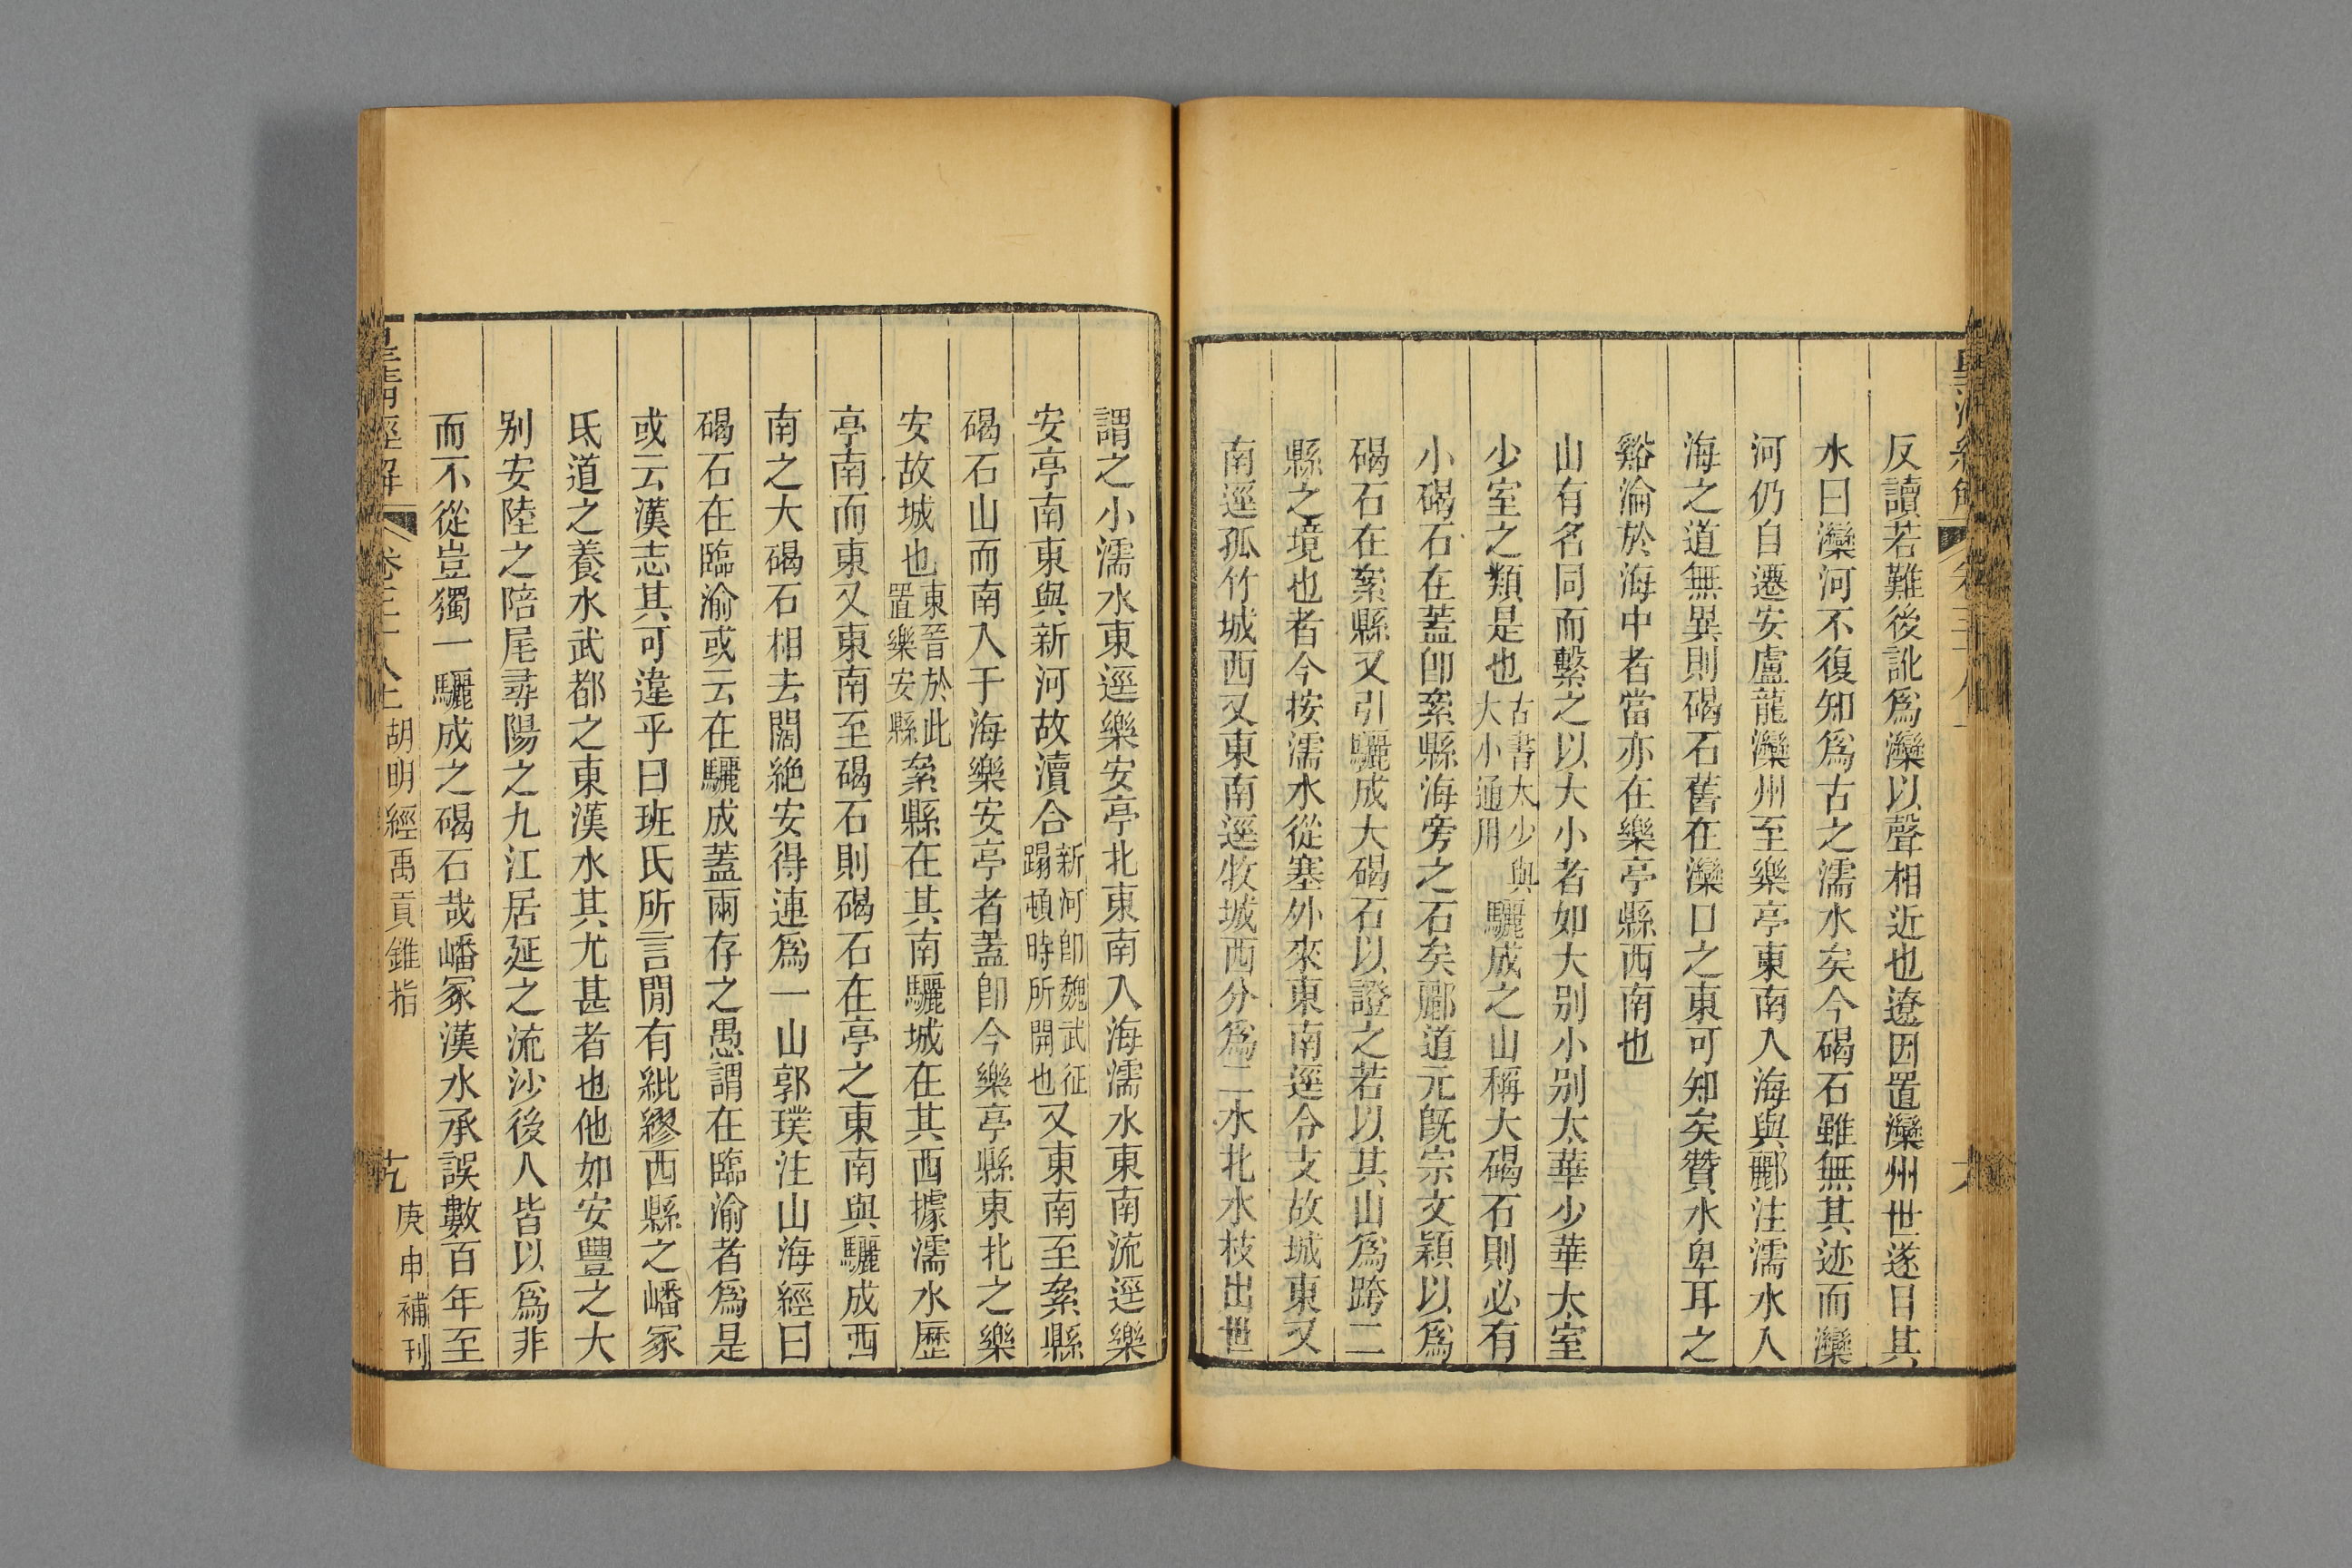 反讀若難後訛爲灤以聲相近也遼因置灤州世遂目其
水曰灤河不復知爲古之濡水矣今碣石雖無其迹而灤
河仍自遷安盧龍灤州至樂亭東南入海與酈注濡水入
海之道無異則碣石舊在灤口之東可知矣贊水卑耳之
谿淪於海中者當亦在樂亭縣西南也
山有名同而繫之以大小者如大別小別太華少華太室
少室之類是也古書太少與大小通用驪成之山稱大碣石則必有
小碣石在蓋卽絫縣海旁之石矣酈道元旣宗文穎以爲
碣石在絫縣又引驪成大碣石以證之若以其山爲跨二
縣之境也者今按濡水從塞外來東南逕令支故城東又
南逕孤竹城西又東南逕牧城西分爲二水北水枝出世
謂之小濡水東逕樂安亭北東南入海濡水東南流逕樂
安亭南東與新河故瀆合新河卽魏武征蹋頓時所開也又東南至絫縣
碣石山而南入于海樂安亭者蓋卽今樂亭縣東北之樂
安故城也東晉於此置樂安縣絫縣在其南驪城在其西據濡水歷
亭南而東又東南至碣石則碣石在亭之東南與驪成西
南之大碣石相去闊絶安得連爲一山郭璞注山海經曰
碣石在臨渝或云在驪成蓋兩存之愚謂在臨渝者爲是
或云漢志其可違乎曰班氏所言閒有紕繆西縣之嶓冢
氐道之養水武都之東漢水其尤甚者也他如安豐之大
別安陸之陪尾尋陽之九江居延之流沙後人皆以爲非
而不從豈獨一驪成之碣石哉嶓冢漢水承誤數百年至
皇清經解 卷三十八上 胡明經禹貢錐指 庚申補刊